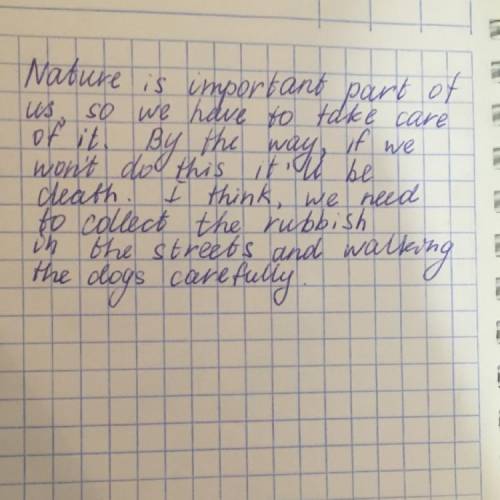 Nature is important part of
us, so we have to take care
of it. By the way, if we
won't do this it'll be
death. I think, we need
to collect the rubbish
in the streets and walking
the dogs carefully.